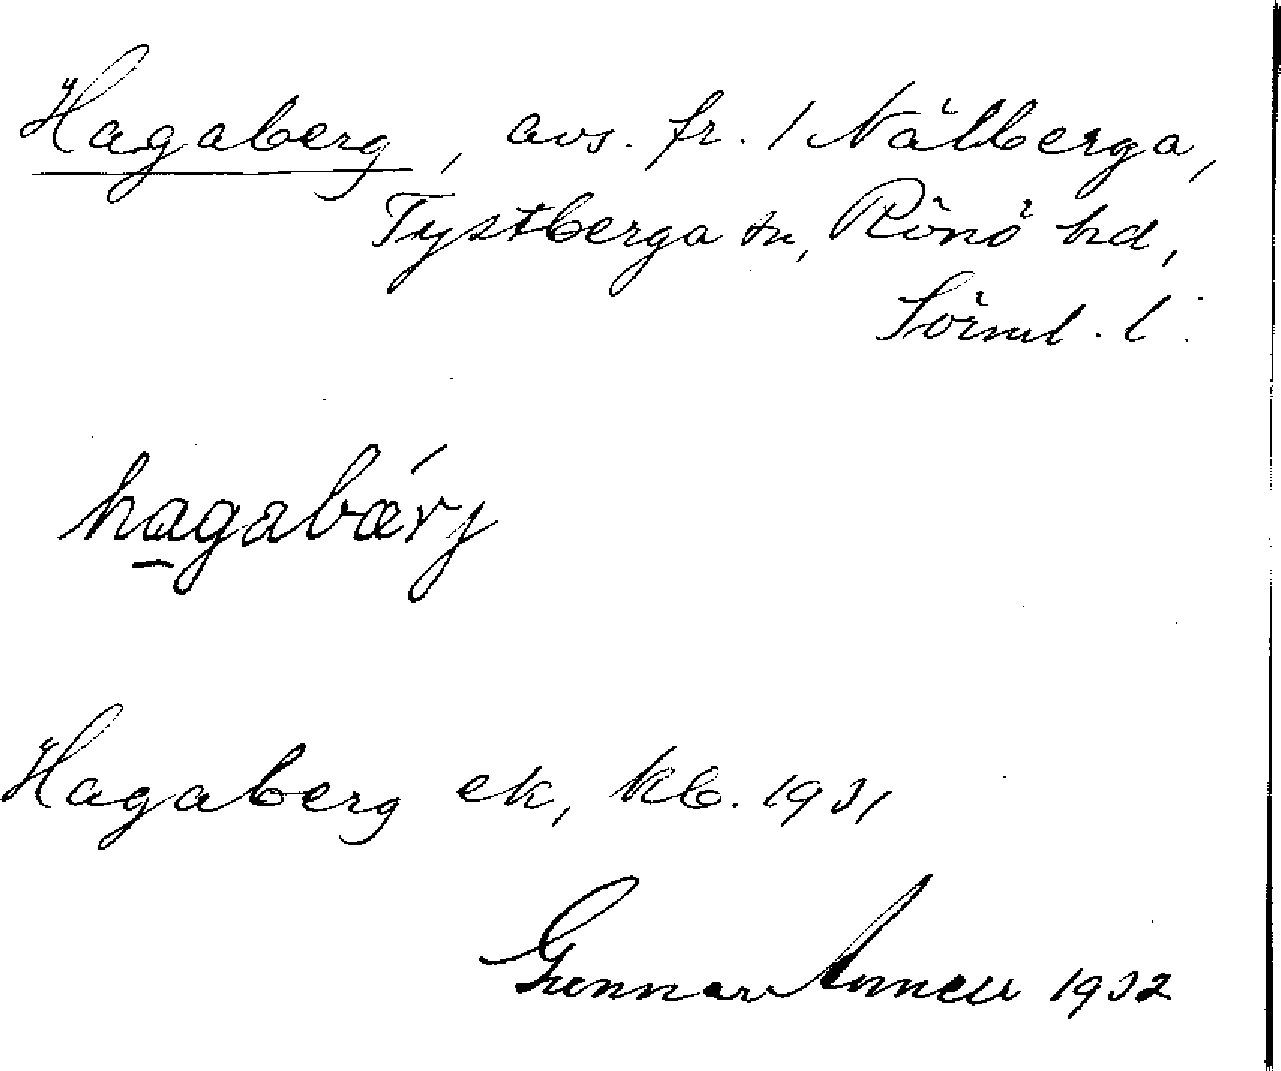 Hagaberg, avs. fr. 1 Nälberga,
Tystberga sn, Rönö hd,
Sörml. l.
hagabærj
Hagaberg ek, kb. 1931
Gunnar Annell 1932